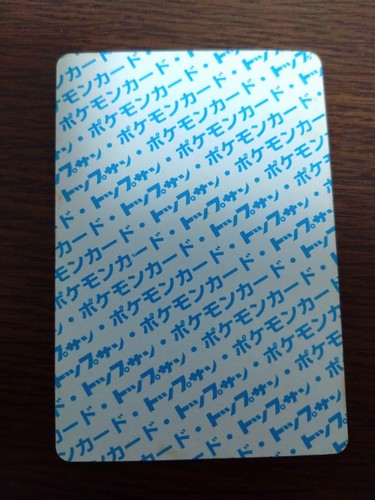 ンカード・
モンカード・トップサン
・ポケモンカード・トップサン・
ン・ポケモンカード・トップサン
トップサン・ポケモンカード・
・トップサン・ポケモンカード
カード・トップサン・ポケモンカード
ンカード・トップサン・ポケモン
ケモンカード・トップサン・ポケ
ポケモンカード・トップサン・
・ポケモンカード・トップサン
サン・ポケモンカード・トップ
トップサン・ポケモンカード・
・トップサン・ポケモンカード
カード・トップサン・ポケモン
ンカード・トップサン・